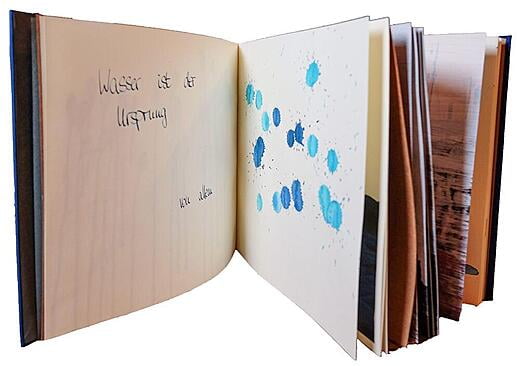 Wasser ist der
Ursprung
von allem